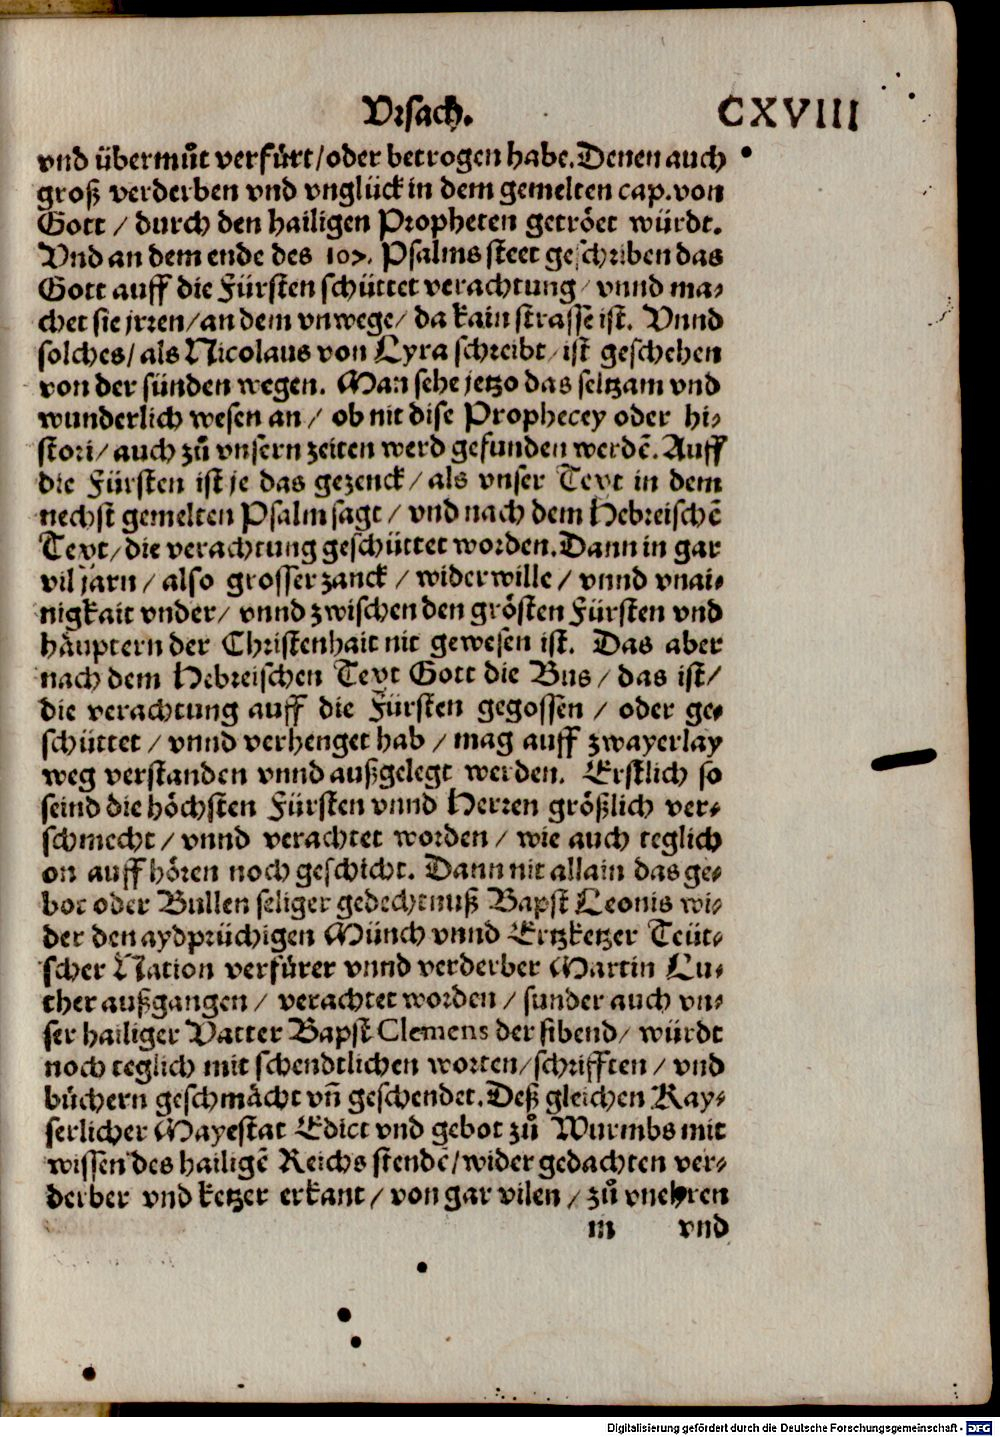 Vrsach. CXVIII
vnd übermůt verfürt/oder betrogen habe. Denen auch
groß verderben vnd vnglück in dem gemelten cap. von
Gott / durch den hailigen Propheten getröet würdt.
Vnd an dem ende des 107. Psalms steet geschriben das
Gott auff die Fürsten schüttet verachtung / vnnd ma-
chet sie jrren/an dem vnwege/ da kain strasse ist. Vnnd
solches/ als Nicolaus von Lyra schreibt/ ist geschehen
von der sünden wegen. Man sehe jetzo das seltzam vnd
wunderlich wesen an / ob nit dise Prophecey oder hi-
stori/ auch zů vnsern zeiten werd gefunden werdē. Auff
die Fürsten ist je das gezenck / als vnser Text in dem
nechst gemelten Psalm sagt / vnd nach dem Hebreischē
Text/ die verachtung geschüttet worden. Dann in gar
vil jarn / also grosser zanck / widerwille / vnnd vnai-
nigkait vnder/ vnnd zwischen den grösten Fürsten vnd
häuptern der Christenhait nit gewesen ist. Das aber
nach dem Hebreischen Text Gott die Bus / das ist/
die verachtung auff die Fürsten gegossen / oder ge-
schüttet / vnnd verhenget hab / mag auff zwayerlay
weg verstanden vnnd außgelegt werden. Erstlich so
seind die höchsten Fürsten vnnd Herren größlich ver-
schmecht / vnnd verachtet worden / wie auch teglich
on auff hören noch geschicht. Dann nit allain das ge-
bot oder Bullen seliger gedechtnuß Bapst Leonis wi-
der den aydprüchigen Münch vnnd Ertzketzer Teüt-
scher Nation verfürer vnnd verderber Martin Lu-
ther außgangen / verachtet worden / sunder auch vn-
ser hailiger Vatter Bapst Clemens der sibend/ würdt
noch teglich mit schendtlichen worten/schrifften / vnd
büchern geschmächt vñ geschendet. Deß gleichen Kay-
serlicher Mayestat Edict vnd gebot zů Wurmbs mit
wissen des hailigē Reichs stendē/wider gedachten ver-
derber vnd ketzer erkant / von gar vilen / zů vnehren
m vnd
Digitalisierung gefördert durch die Deutsche Forschungsgemeinschaft - DFG